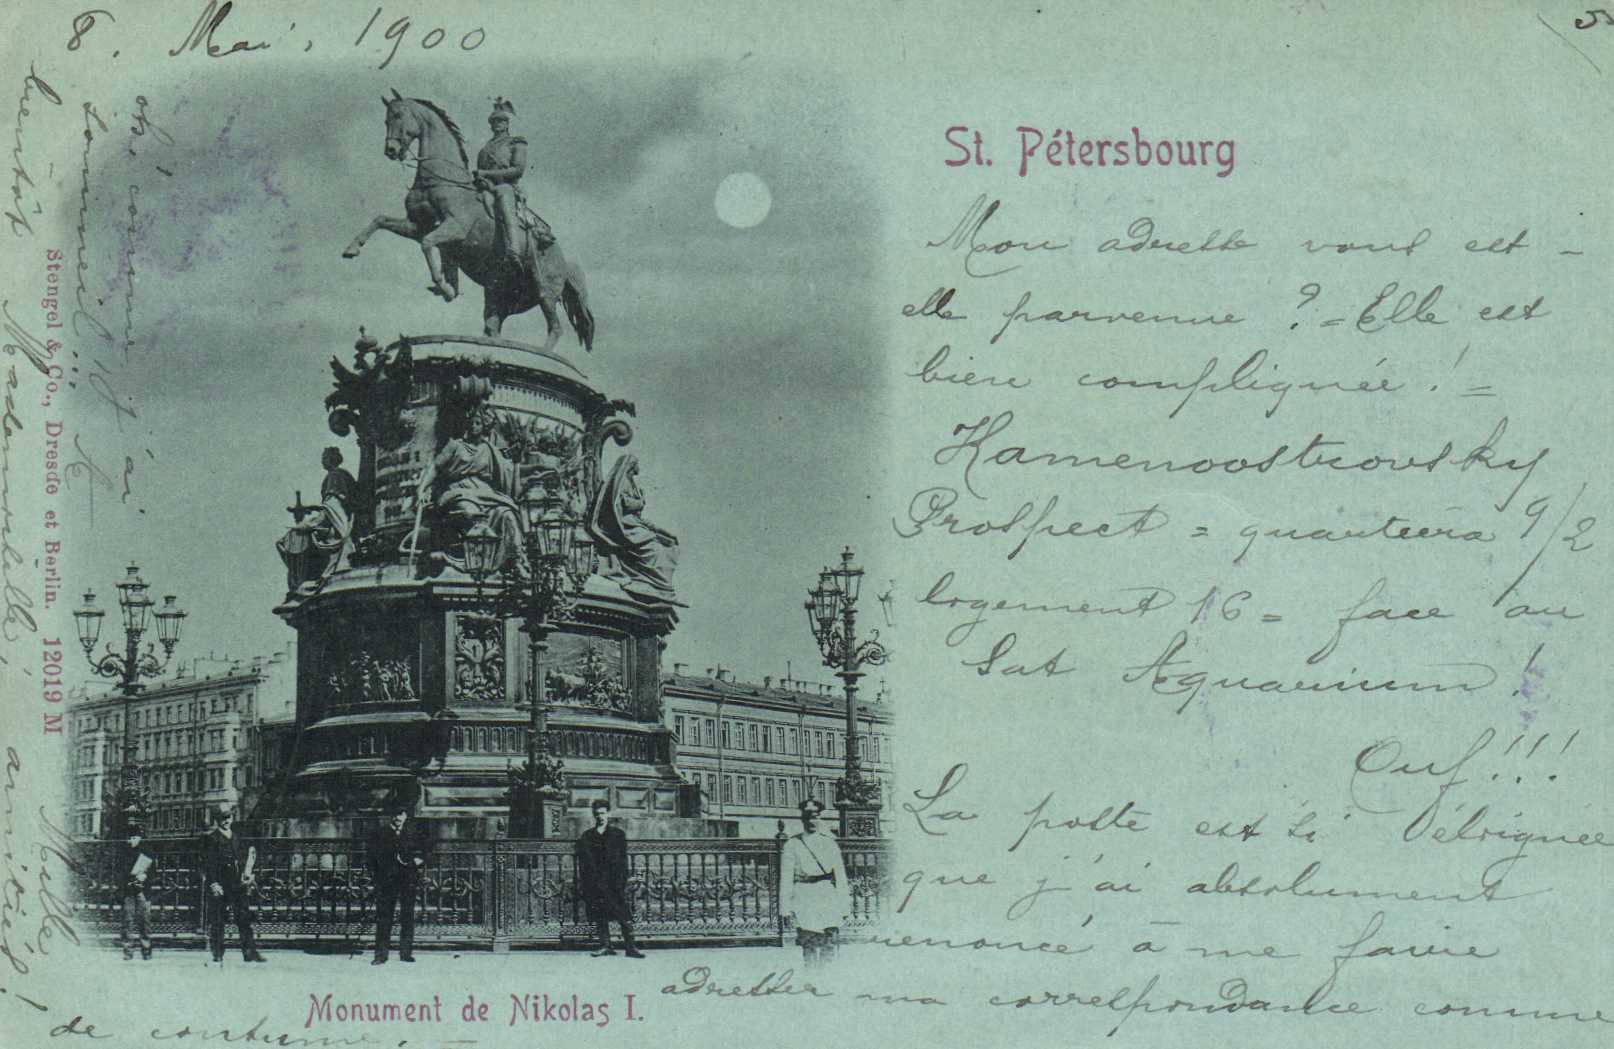 8. Mai, 1900
St. Pétersbourg
Mon adresse vous est-
elle parvenue ? = Elle est
bien compliquée ! =
Kamenoostrowsky
Prospect = quartiera 9/2
logement 16 = face au
Aquarium !
Ouf !!!
La poste est si éloignée
que j'ai absolument
renoncé à me faire
adresser ma correspondance comme
de coutume. —
j'ai
sommeil !!!
bientôt Mademoiselle, amitiés !
Mille
Monument de Nikolas I.
Stengel & Co., Dresde et Berlin. 12019 M